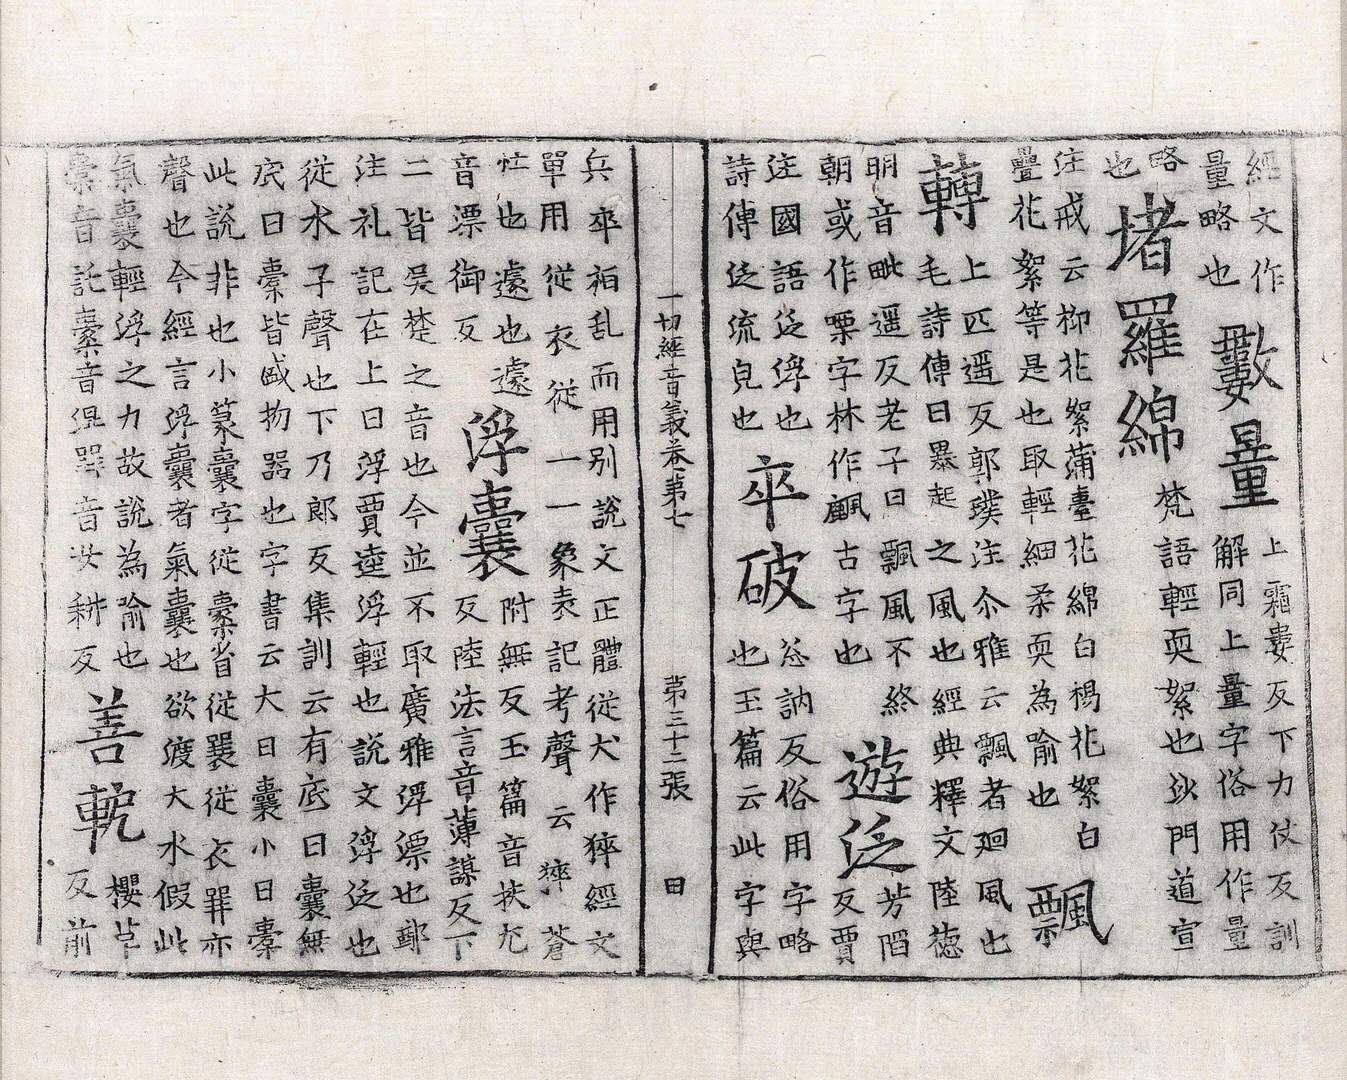 經文作
量略也
數量
上霜婁反下力仗反訓
解同上量字俗用作量
略
也
堵羅綿
梵語輕耎絮也沙門道宣
注戒云柳花絮蒲臺花綿白楊花絮白
疊花絮等是也取輕細柔耎為喻也
飄
轉
上匹遥反郭璞注尒雅云飄者廻風也
毛詩傳曰暴起之風也經典釋文陸德
明音毗遥反老子曰飄風不終
朝或作字林作古字也
遊泛
芳䧟
反賈
注國語泛浮也
詩傳泛流皃也
卒破
忩訥反俗用字略
也玉篇云此字與
一切經音義卷第七 第三十二張 田
兵卒相乱而用別說文正體從犬作猝經文
單用從衣從一一象表記考聲云猝蒼
忙也遽也遽
音漂御反
浮囊
附無反玉篇音扶尤
反陸法言音薄謀反下
二皆吳楚之音也今並不取廣雅浮漂也鄭
注礼記在上曰浮賈逵浮輕也說文浮泛也
從水子聲也下乃郎反集訓云有底曰囊無
底曰橐皆盛物器也字書云大曰囊小曰橐
此說非也小篆囊字從橐省從㐮從衣㐮亦
聲也今經言浮囊者氣囊也欲渡大水假此
氣囊輕浮之力故說為喻也
橐音託㯻音混㗊音女耕反
善軛
櫻革
反前